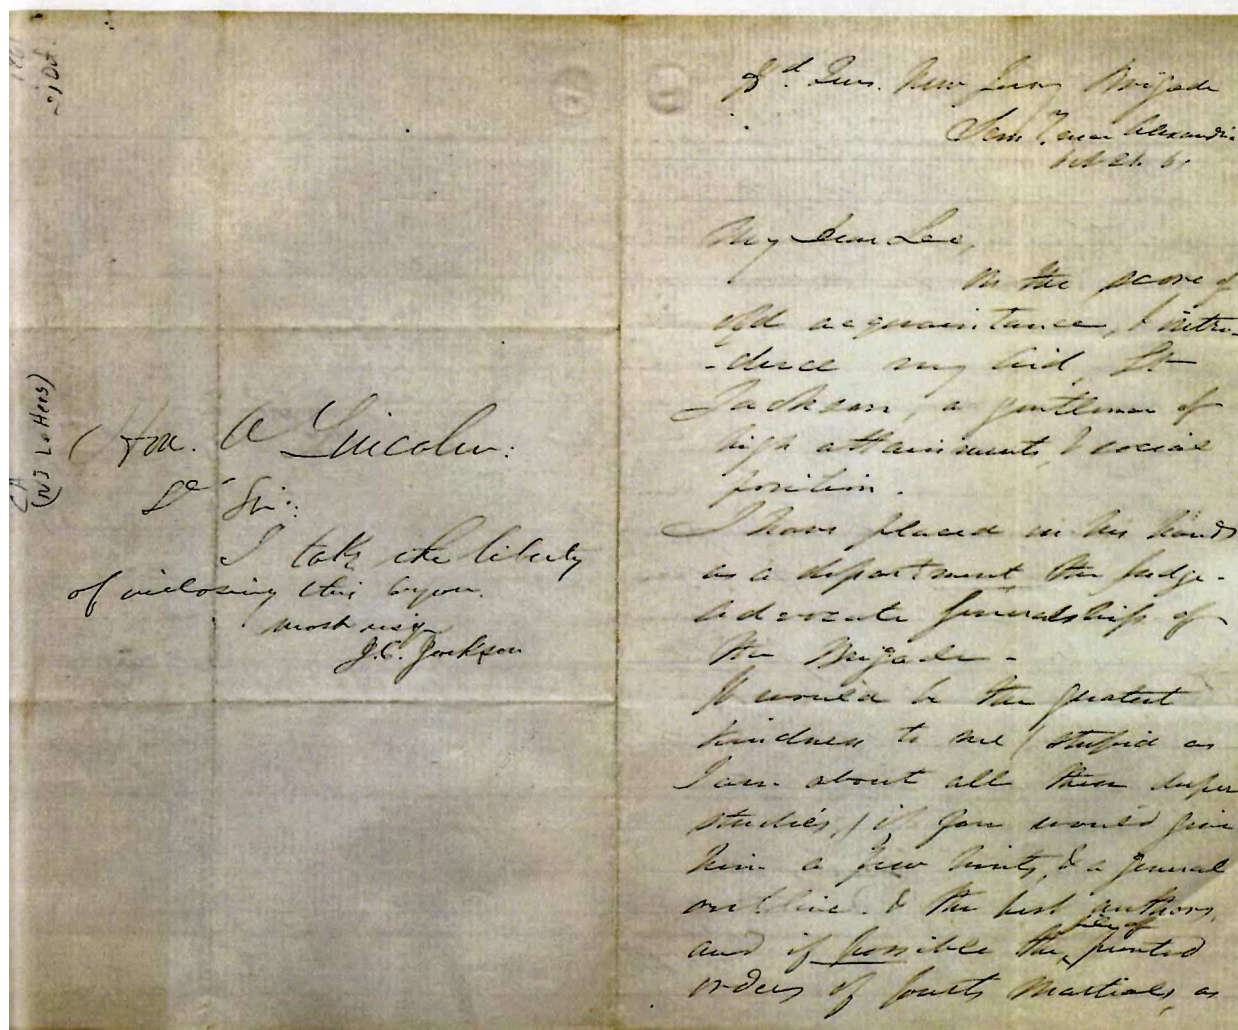 21 Oct.
(NJ Letters)
Hon. A Lincoln:
Dr Sir:
I take the liberty
of inclosing this to you.
most resy
J.C. Jackson
Hd. Qurs. New Jersey Brigade
Semy near Alexandria
Oct 21. 61
My dear Lee,
On the score of
old acquaintance, I intro-
-duce my Aid, Lt
Jackson, a gentleman of
high attainments & social
position.
I have placed in his hands
as a department the Judge-
Advocate Generalship of
the Brigade -
It would be the greatest
kindness to me (stupid as
I am about all these deeper
studies,) if you would give
him a few hints, & a general
outline. & the best authors,
and if possible the file of printed
orders of Courts Martials, as